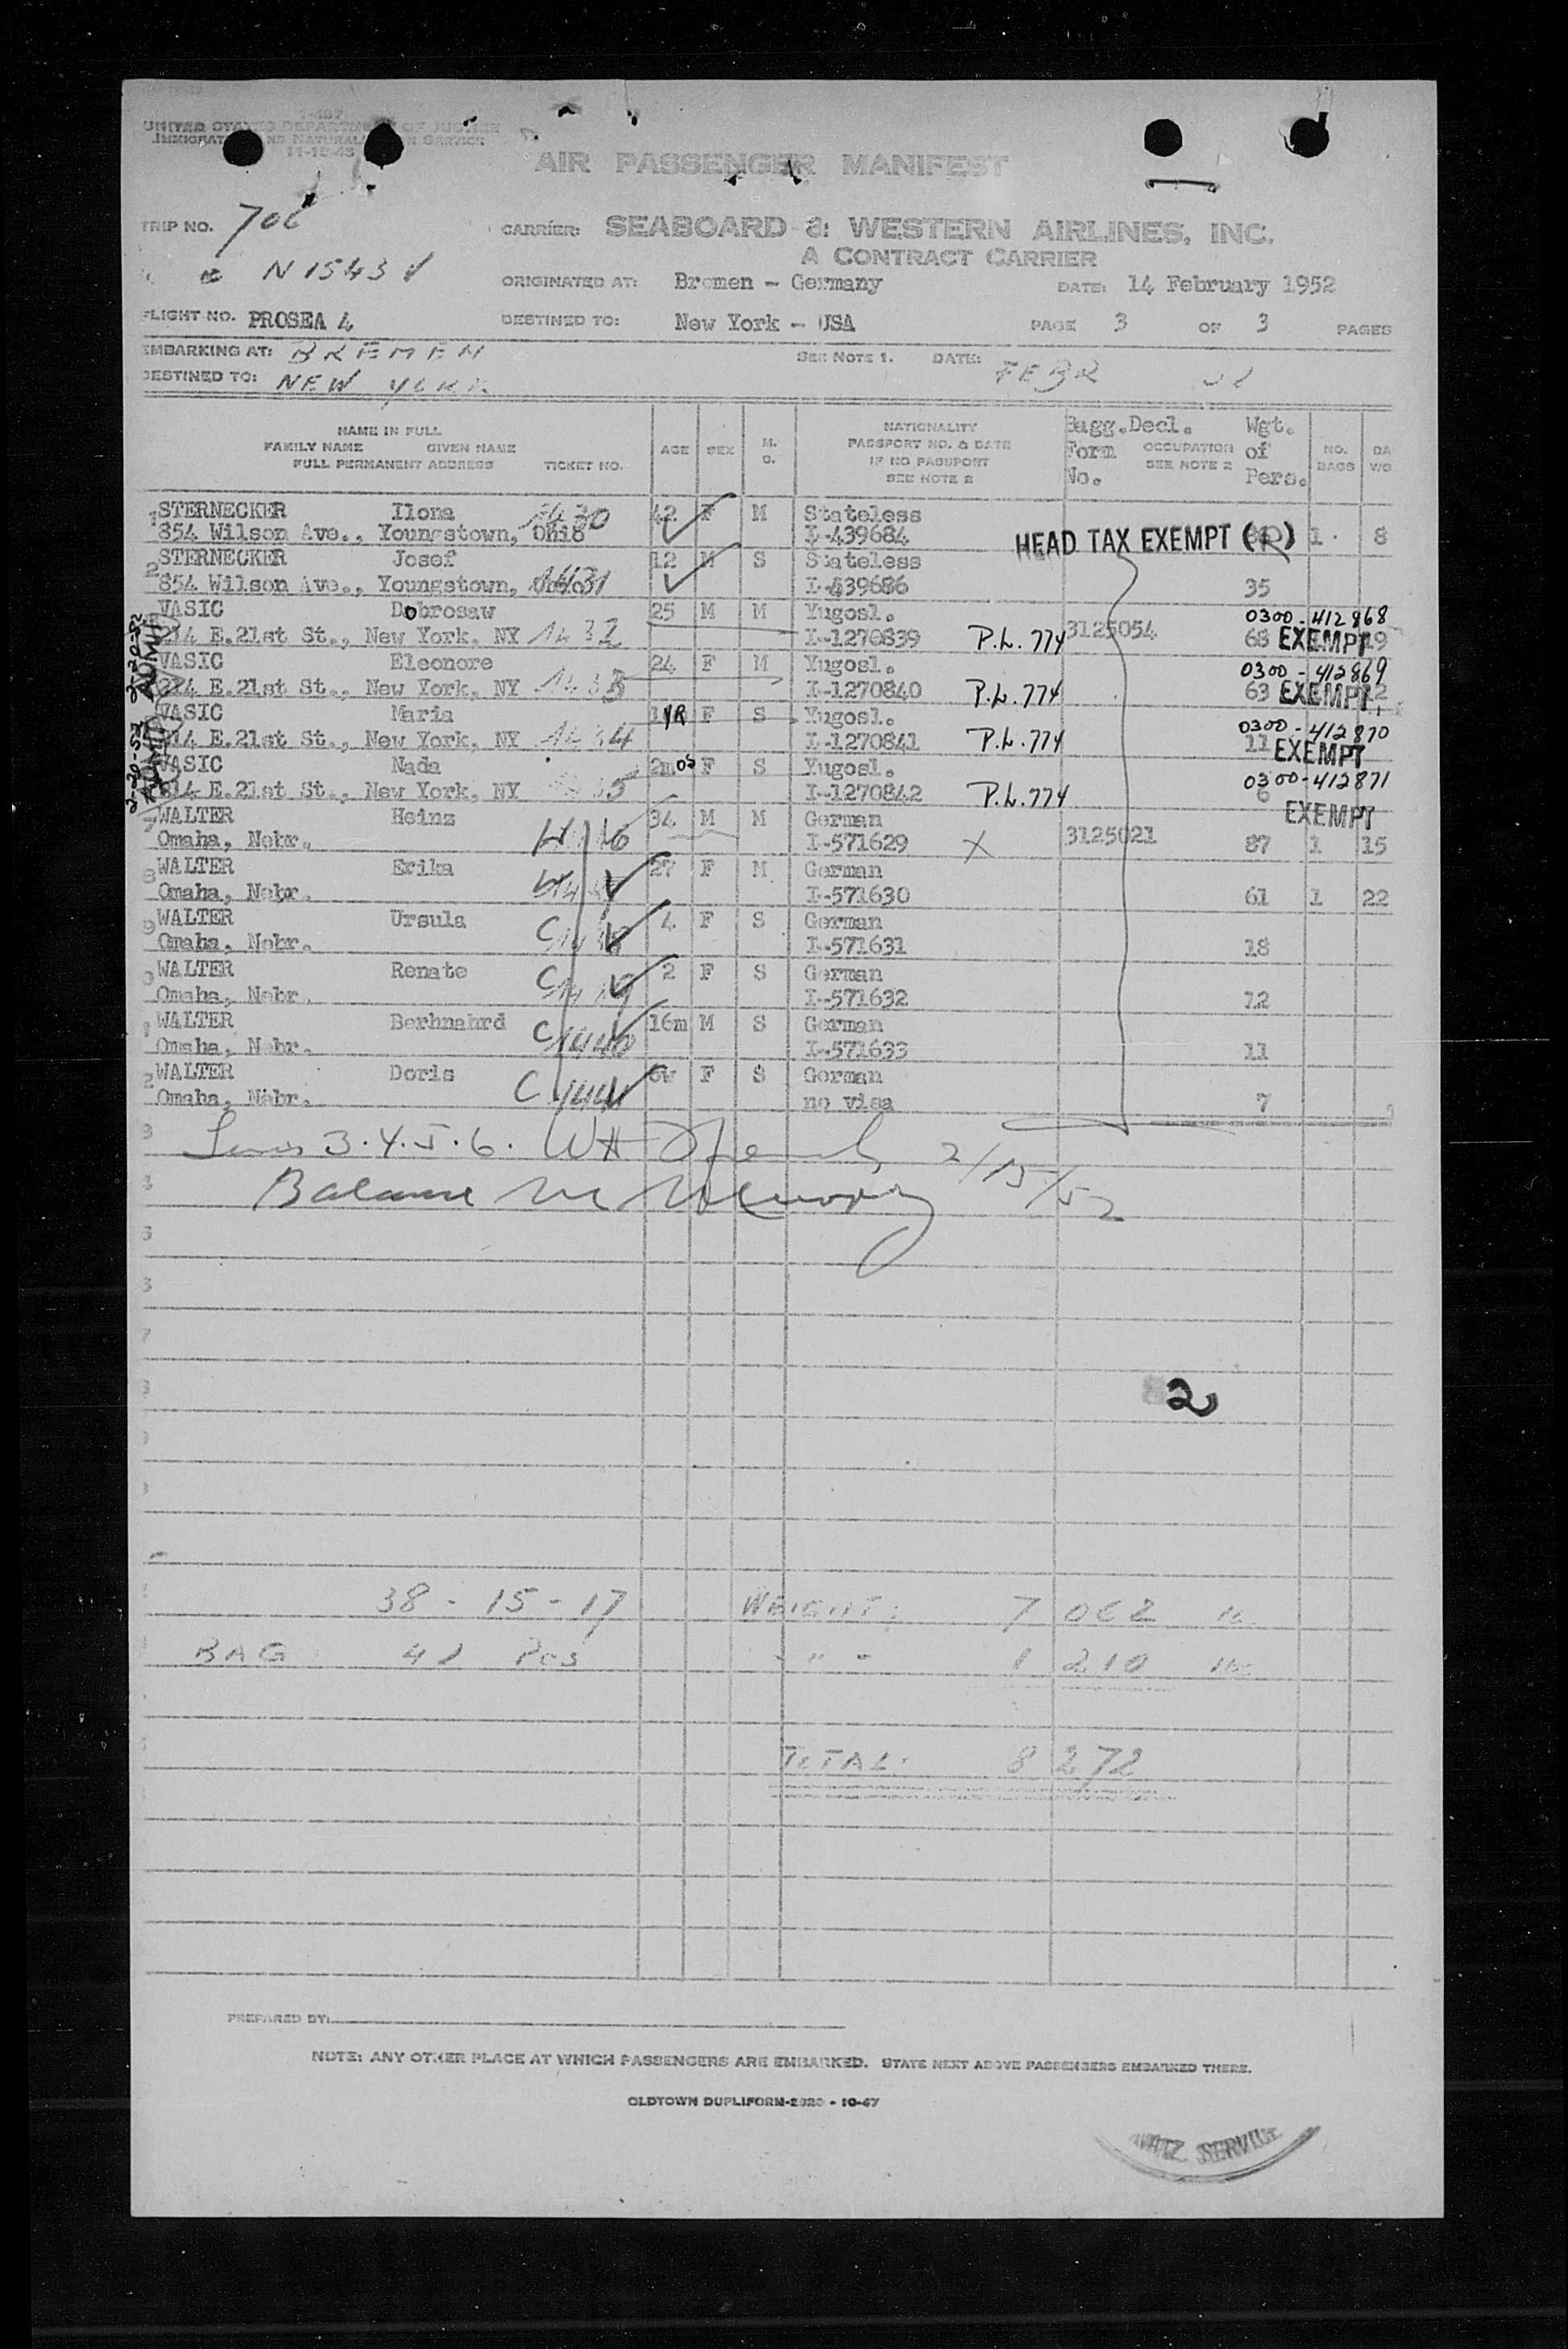 I-487
UNITED STATES DEPARTMENT OF JUSTICE
IMMIGRAT ND NATURAL N SERVICE
11-15-45
AIR PASSENGER MANIFEST
TRIP NO. 70
CARRIER: SEABOARD & WESTERN AIRLINES, INC.
A CONTRACT CARRIER
N 1543 V
ORIGINATED AT: Bremen - Germany DATE: 14 February 1952
FLIGHT NO. PROSEA 4 DESTINED TO: New York - USA PAGE 3 OF 3 PAGES
EMBARKING AT: BREMEN SEE NOTE 1. DATE: FEBR
DESTINED TO: NEW YORK
NAME IN FULL
FAMILY NAME GIVEN NAME
FULL PERMANENT ADDRESS TICKET NO.
AGE SEX M. S.
NATIONALITY
PASSPORT NO. & DATE
IF NO PASSPORT
SEE NOTE 2
Bagg.Decl. Form No. OCCUPATION SEE NOTE 2 Wgt. of Pers. NO. BAGS BA WG
1 STERNECKER Ilona 1430 42 F M Stateless
854 Wilson Ave., Youngstown, Ohio I-439684 HEAD TAX EXEMPT (R) 1 8
2 STERNECKER Josef 12 M S Stateless
854 Wilson Ave., Youngstown, 1431 I-439686 35
VASIC Dobrosaw 25 M M Yugosl. 0300-412868
214 E.21st St., New York, NY 1432 I-1270839 P.L. 774 3125054 68 EXEMPT 19
VASIC Eleonore 24 F M Yugosl. 0300-412869
214 E.21st St., New York, NY 1433 I-1270840 P.L. 774 63 EXEMPT
VASIC Maria 1 YR F S Yugosl. 0300-412870
214 E.21st St., New York, NY 1434 I-1270841 P.L. 774 11 EXEMPT
VASIC Nada 2mos F S Yugosl. 0300-412871
214 E.21st St., New York, NY I-1270842 P.L. 774 6
EXEMPT
7 WALTER Heinz 34 M M German
Omaha, Nebr. I-571629 X 3125021 87 1 15
8 WALTER Erika 27 F M German
Omaha, Nebr. I-571630 61 1 22
9 WALTER Ursula C 4 F S German
Omaha, Nebr. I-571631 18
0 WALTER Renate C 2 F S German
Omaha, Nebr. I-571632 12
1 WALTER Berhnahrd C 16m M S German
Omaha, Nebr. 1440 I-571633 11
2 WALTER Doris C 6w F S German
Omaha, Nebr. 1441 no visa 7
2-20-52 ADMITTED
2-20-52 ADMITTED
Lines 3.4.5.6. 2/15/52
Balance
2
38 - 15 - 17 WEIGHT: 7 062
BAG Pcs " 1 210
TOTAL: 8 272
PREPARED BY:
NOTE: ANY OTHER PLACE AT WHICH PASSENGERS ARE EMBARKED. STATE NEXT ABOVE PASSENGERS EMBARKED THERE.
OLDTOWN DUPLIFORM-2820 - 10-47